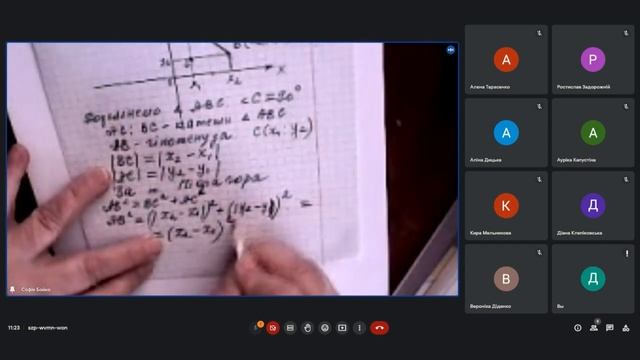 x₂
x₁
x₂
x
△ ABC. ∠C = 90°
AC; BC - катети △ ABC
AB - гіпотенуза C(x₁; y₂)
|BC| = |x₂ - x₁|
|AC| = |y₂ - y₁|
За т. Піфагора
AB² = BC² + AC²
AB² = (|x₂ - x₁|)² + (|y₂ - y₁|)² =
= (x₂ - x₁)²
Софія Бойко
А
Алена Тарасенко
Р
Ростислав Задорожній
А
Аліна Дицька
А
Ауріка Капустіна
К
Кира Мельникова
Д
Діана Клапіковська
В
Вероніка Діденко
Д
Ви
11:23
szp-wvmn-won